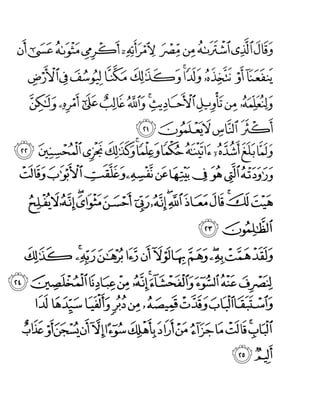 وَقَالَ ٱلَّذِى ٱشْتَرَىٰهُ مِن مِّصْرَ لِٱمْرَأَتِهِۦٓ أَكْرِمِى مَثْوَىٰهُ عَسَىٰٓ أَن
يَنفَعَنَآ أَوْ نَتَّخِذَهُۥ وَلَدًا ۚ وَكَذَٰلِكَ مَكَّنَّا لِيُوسُفَ فِى ٱلْأَرْضِ
وَلِنُعَلِّمَهُۥ مِن تَأْوِيلِ ٱلْأَحَادِيثِ ۚ وَٱللَّهُ غَالِبٌ عَلَىٰٓ أَمْرِهِۦ وَلَٰكِنَّ
أَكْثَرَ ٱلنَّاسِ لَا يَعْلَمُونَ ٢١
وَلَمَّا بَلَغَ أَشُدَّهُۥٓ ءَاتَيْنَٰهُ حُكْمًا وَعِلْمًا ۚ وَكَذَٰلِكَ نَجْزِى ٱلْمُحْسِنِينَ ٢٢
وَرَٰوَدَتْهُ ٱلَّتِى هُوَ فِى بَيْتِهَا عَن نَّفْسِهِۦ وَغَلَّقَتِ ٱلْأَبْوَٰبَ وَقَالَتْ
هَيْتَ لَكَ ۚ قَالَ مَعَاذَ ٱللَّهِ ۖ إِنَّهُۥ رَبِّىٓ أَحْسَنَ مَثْوَاىَ ۖ إِنَّهُۥ لَا يُفْلِحُ
ٱلظَّٰلِمُونَ ٢٣
وَلَقَدْ هَمَّتْ بِهِۦ ۖ وَهَمَّ بِهَا لَوْلَآ أَن رَّءَا بُرْهَٰنَ رَبِّهِۦ ۚ كَذَٰلِكَ
لِنَصْرِفَ عَنْهُ ٱلسُّوٓءَ وَٱلْفَحْشَآءَ ۚ إِنَّهُۥ مِنْ عِبَادِنَا ٱلْمُخْلَصِينَ ٢٤
وَٱسْتَبَقَا ٱلْبَابَ وَقَدَّتْ قَمِيصَهُۥ مِن دُبُرٍ وَأَلْفَيَا سَيِّدَهَا لَدَا
ٱلْبَابِ ۚ قَالَتْ مَا جَزَآءُ مَنْ أَرَادَ بِأَهْلِكَ سُوٓءًا إِلَّآ أَن يُسْجَنَ أَوْ عَذَابٌ
أَلِيمٌ ٢٥